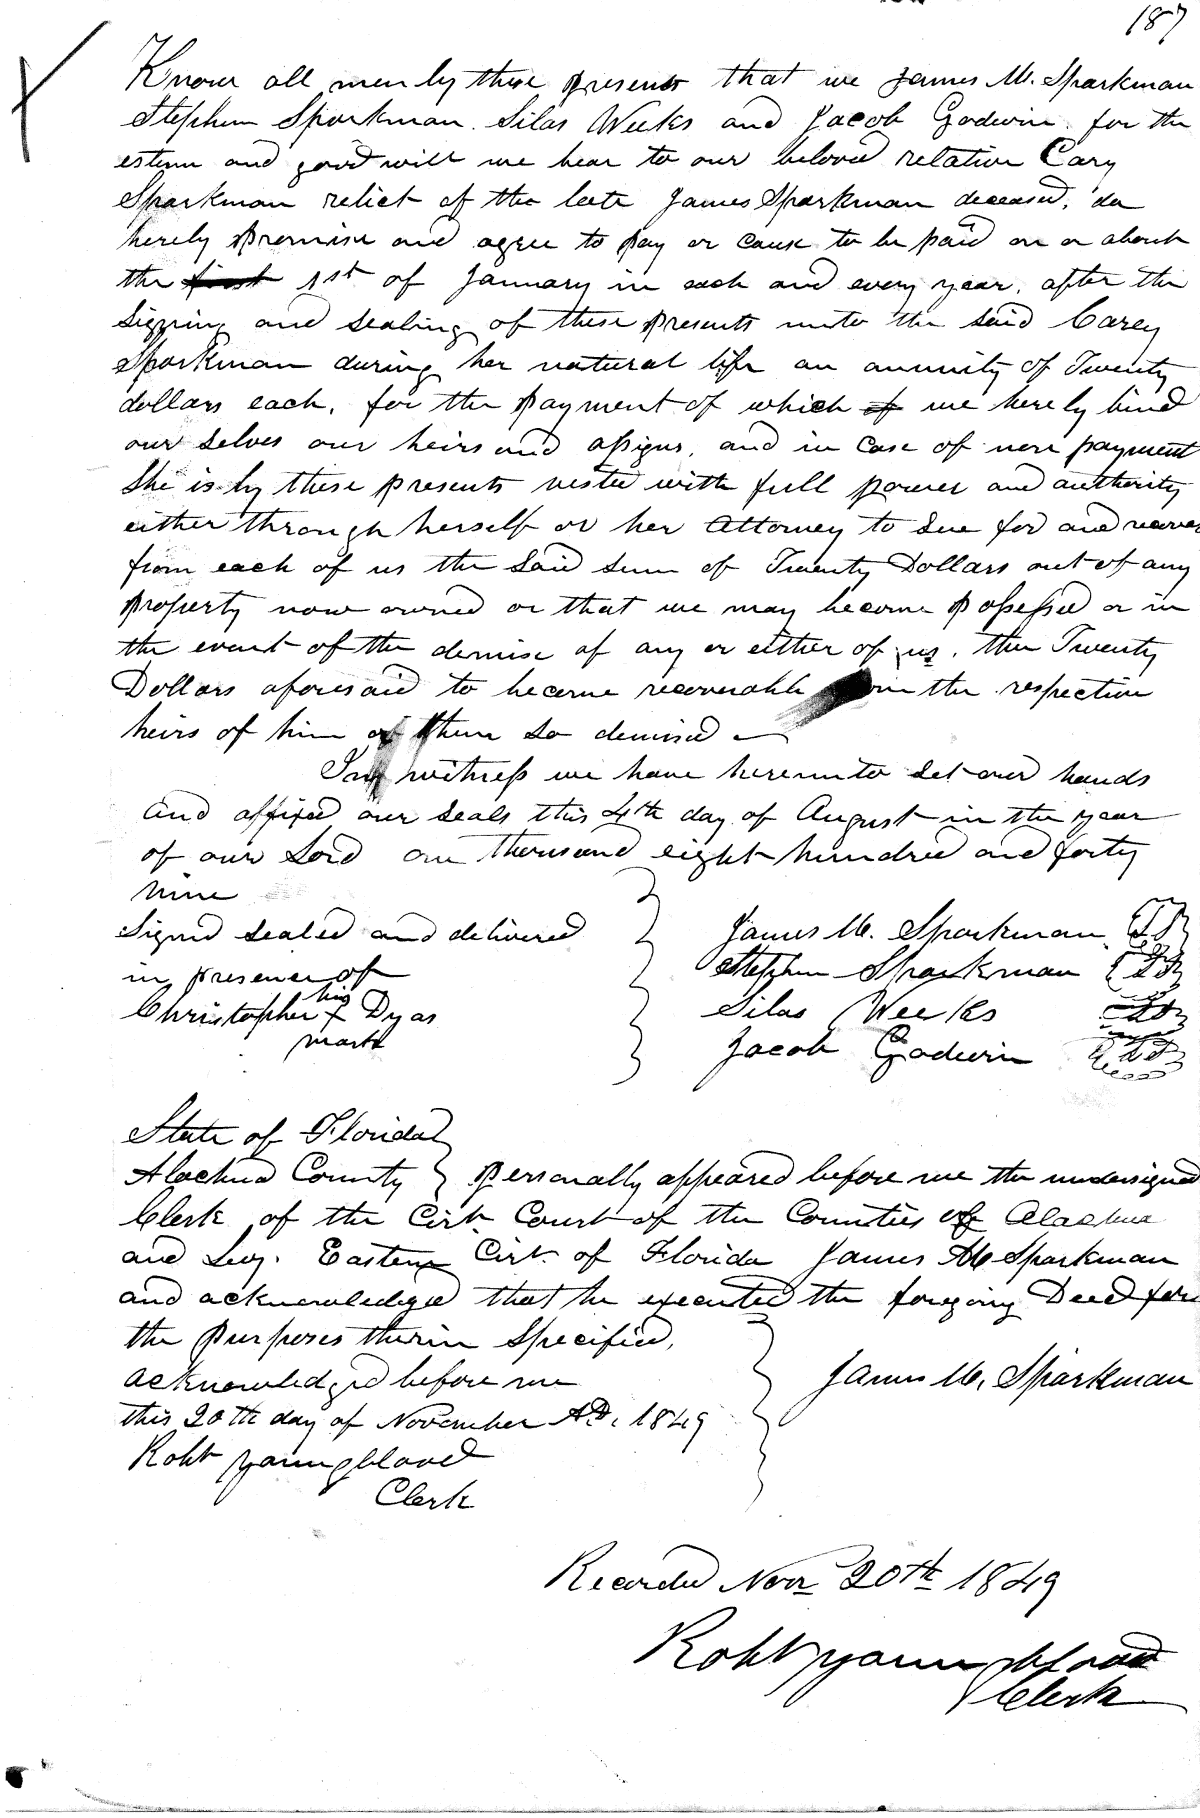 187
Know all men by these presents that we James M. Sparkman
Stephen Sparkman. Silas Weeks and Jacob Godwin for the
esteem and good will we bear to our beloved relation Cary
Sparkman relict of the late James Sparkman deceased, do
hereby promise and agree to pay or cause to be paid on or about
the first 1st of January in each and every year, after the
signing and sealing of these presents unto the said Carey
Sparkman during her natural life an annuity of Twenty
dollars each, for the payment of which of we hereby bind
our selves our heirs and assigns, and in case of non payment
She is by these presents vested with full power and authority
either through herself or her Attorney to sue for and recover
from each of us the said sum of Twenty Dollars out of any
property now owned or that we may become possessed or in
the event of the demise of any or either of us, the Twenty
Dollars aforesaid to become recoverable from the respection
heirs of him or them so demised
In witness we have hereunto set our hands
and affixed our seals this 4th day of August in the year
of our Lord one thousand eight hundred and forty
nine
Signed sealed and delivered
in presence of
Christopher his x mark Dyas
James M. Sparkman LS
Stephen Sparkman LS
Silas Weeks LS
Jacob Godwin LS
State of Florida
Alachua County } personally appeared before me the undersigned
Clerk of the Cirt Court of the Counties of Alachua
and Levy. Eastern Cirt. of Florida James M Sparkman
and acknowledged that he executed the foregoing Deed for
the purposes therin specified,
acknowledged before me
this 20th day of November AD. 1849
Robt Youngblood
Clerk
James M. Sparkman
Recorded Novr 20th 1849
Robt Youngblood
Clerk